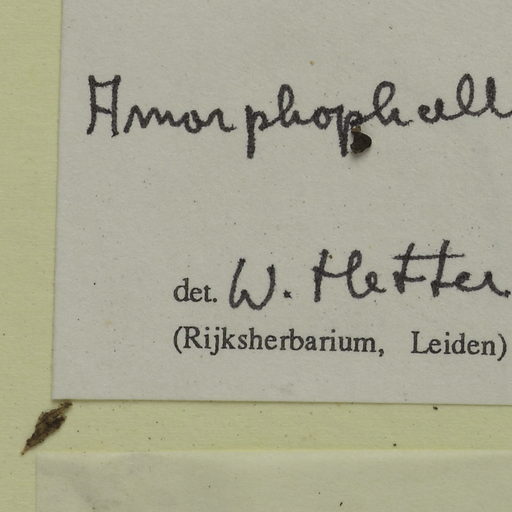 Amorphophall
det. W. Hetter
(Rijksherbarium, Leiden)